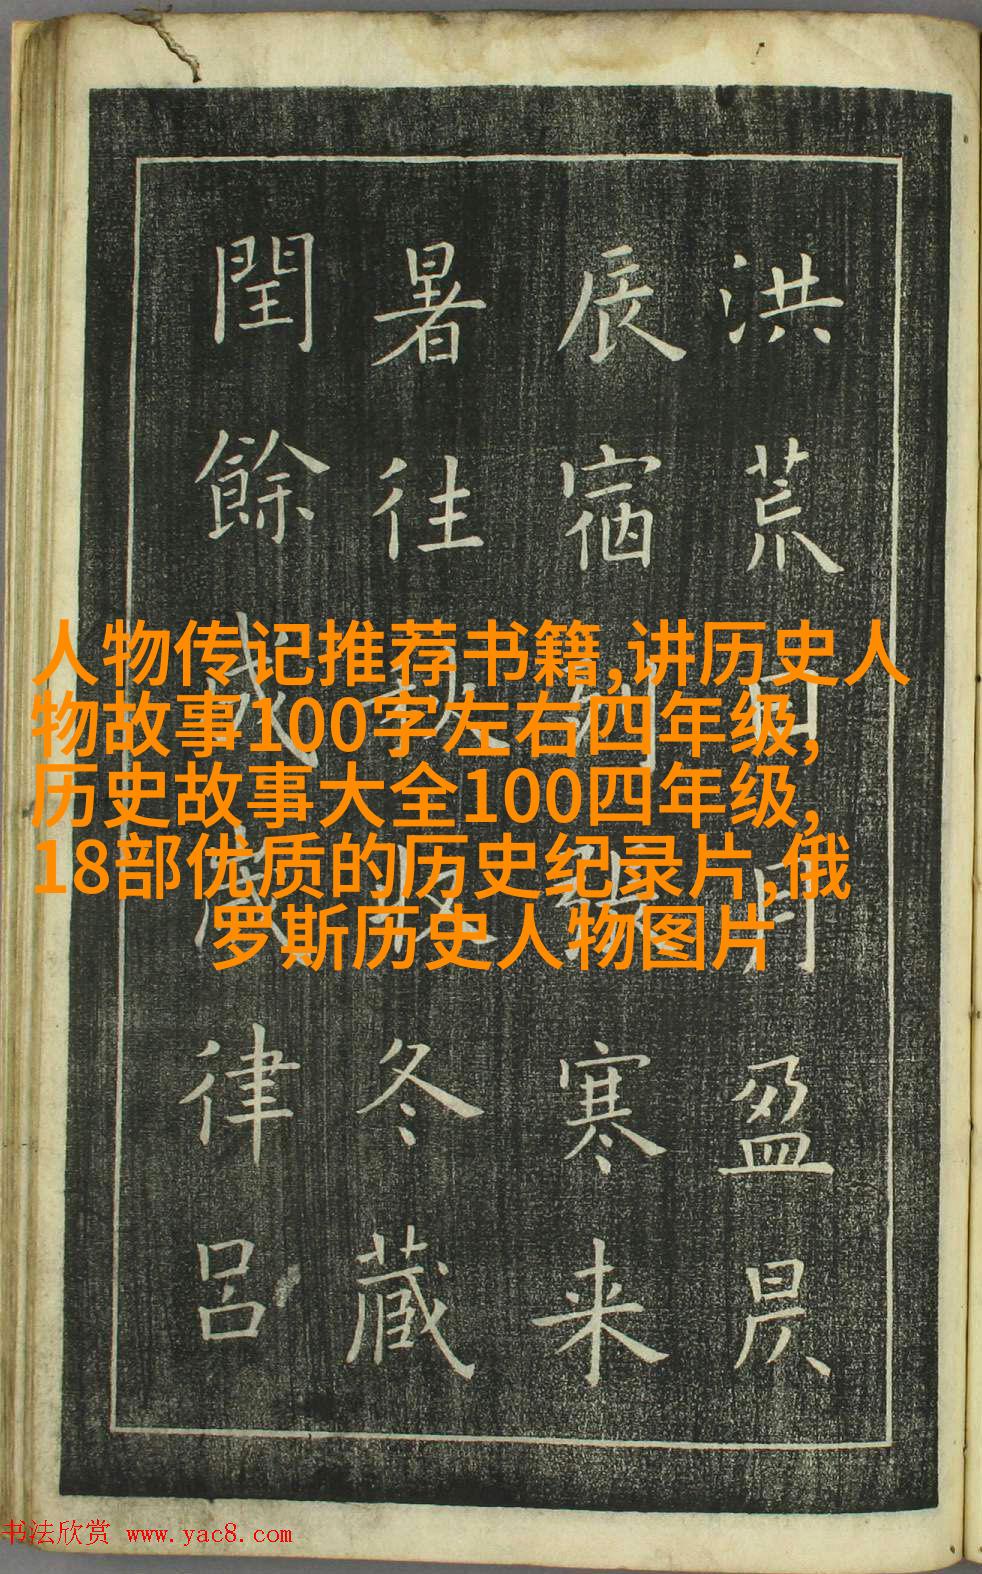 洪荒日月盈昃
辰宿列張寒来
暑往秋收冬藏
閏餘成歲律呂
人物传记推荐书籍,讲历史人
物故事100字左右四年级,
历史故事大全100四年级,
18部优质的历史纪录片,俄
罗斯历史人物图片
书法欣赏 www.yac8.com